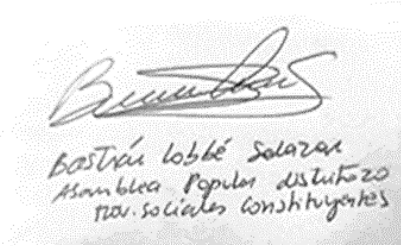 Bastián Lobbé Salazar
Asamblea Popular distrito 20
mov. sociales constituyentes